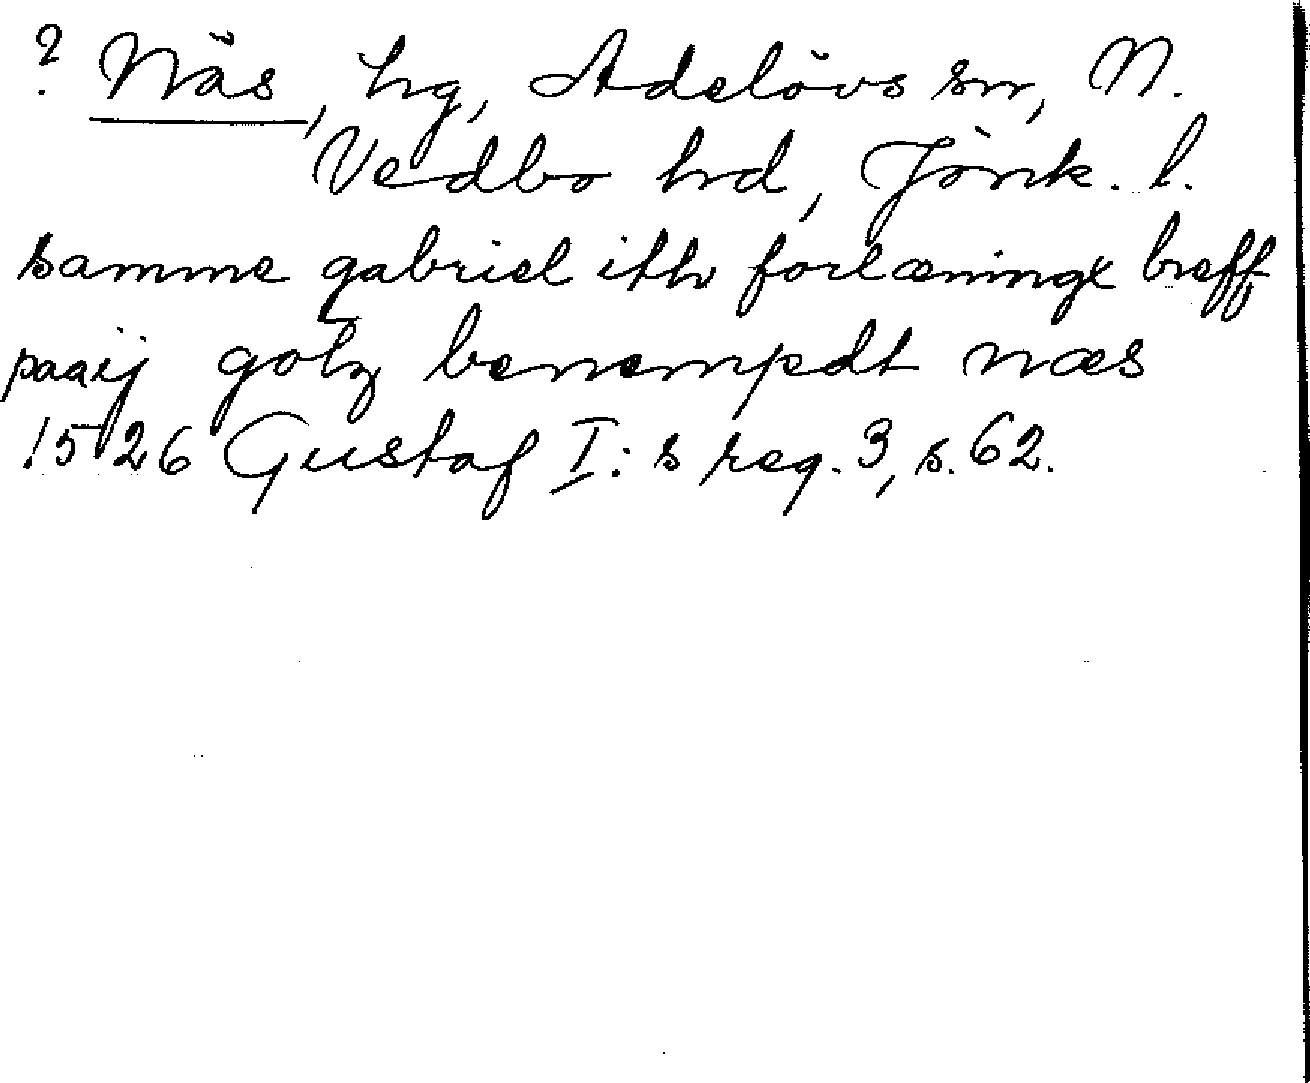 ? Näs, hg, Adelövs sn, N.
Vedbo hd, Jönk. l.
samme gabriel ith forlæningx breff
paaij gotz benempdt næs
1526 Gustaf I:s reg. 3, s. 62.